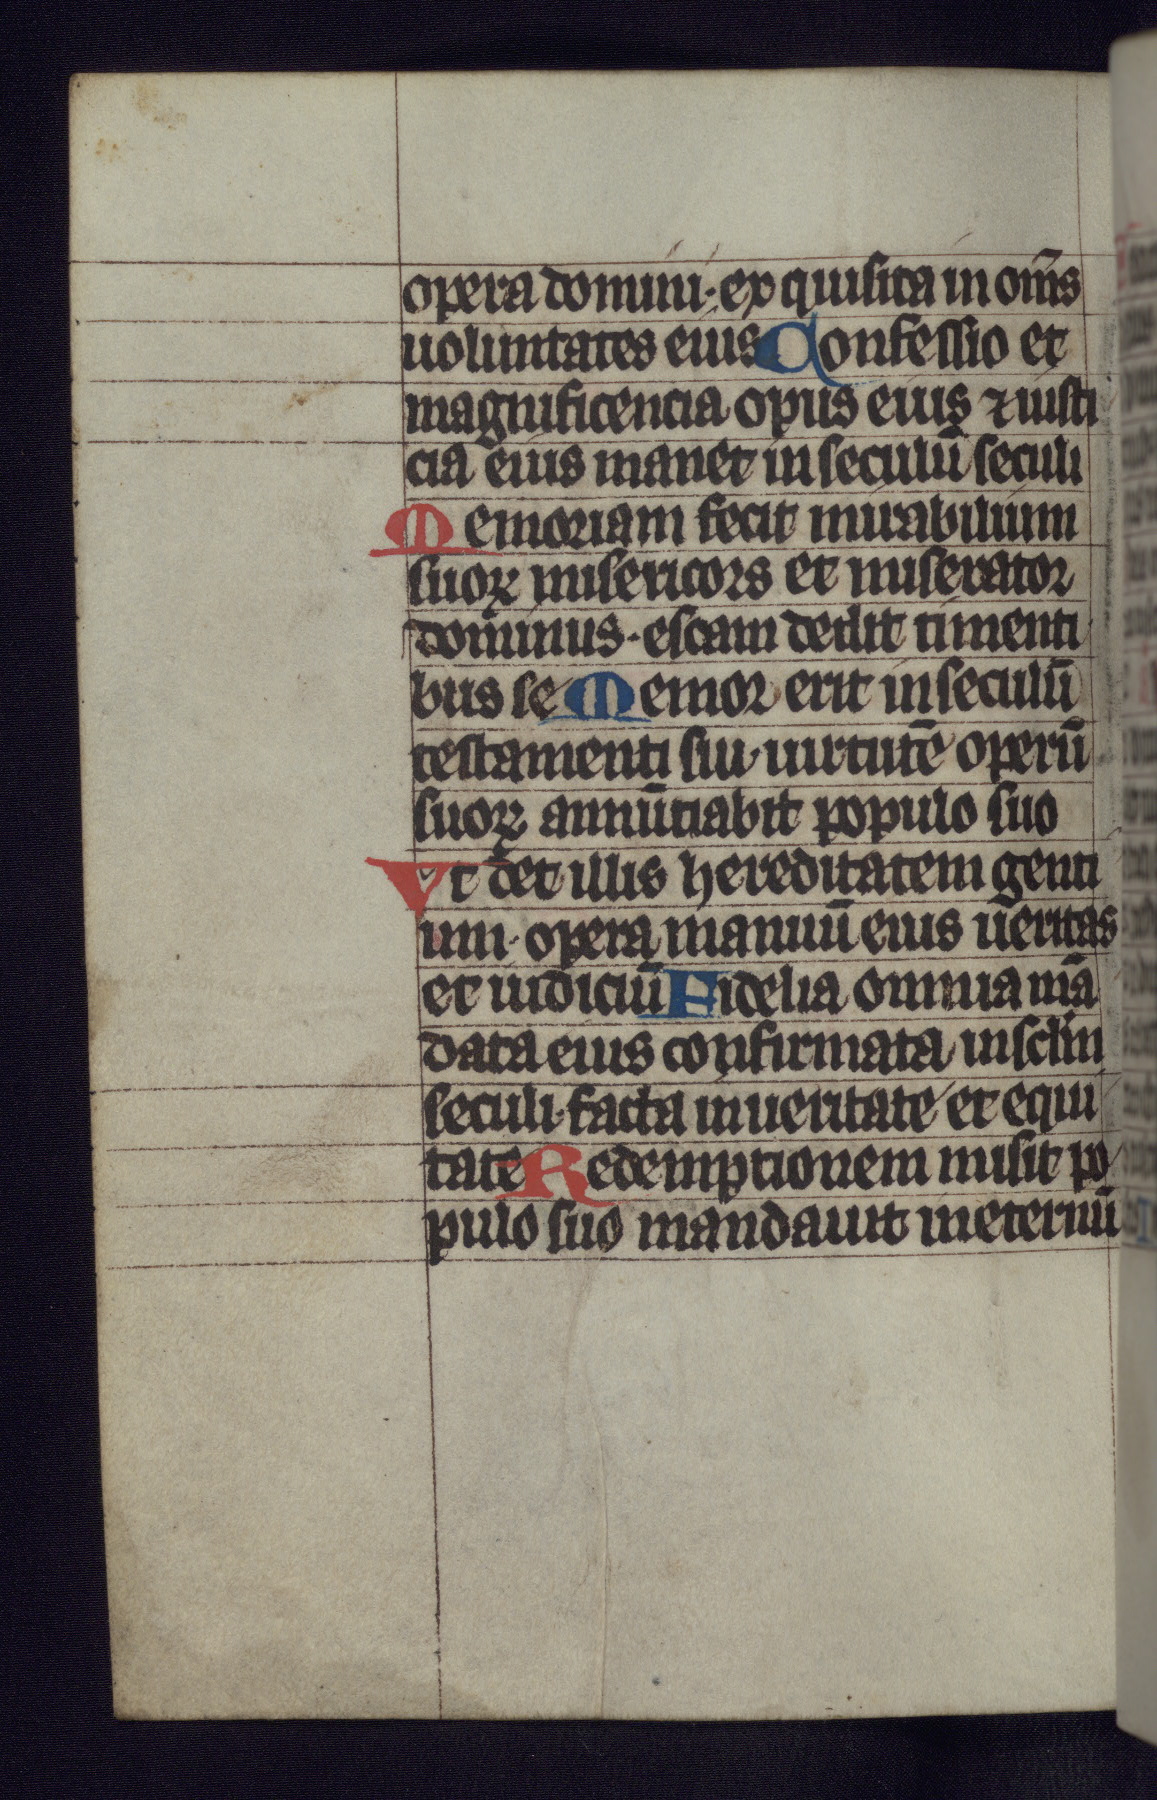 opera domini· exquisita in om̄s
uoluntates eius Confessio et
magnificencia opus eius ⁊ iusti
cia eius manet in seculū seculi
Memoriam fecit mirabilium
suoꝝ misericors et miserator
dominus· escam dedit timenti
bus se Memor erit in seculū
testamenti sui· uirtutē operū
suoꝝ annūtiabit populo suo
Vt det illis hereditatem genti
um· opera manuū eius ueritas
et iudiciū Fidelia omnia mā
data eius confirmata in sclm̄
seculi· facta in ueritate et equi
tate Redemptionem misit po
pulo suo mandauit in eternū